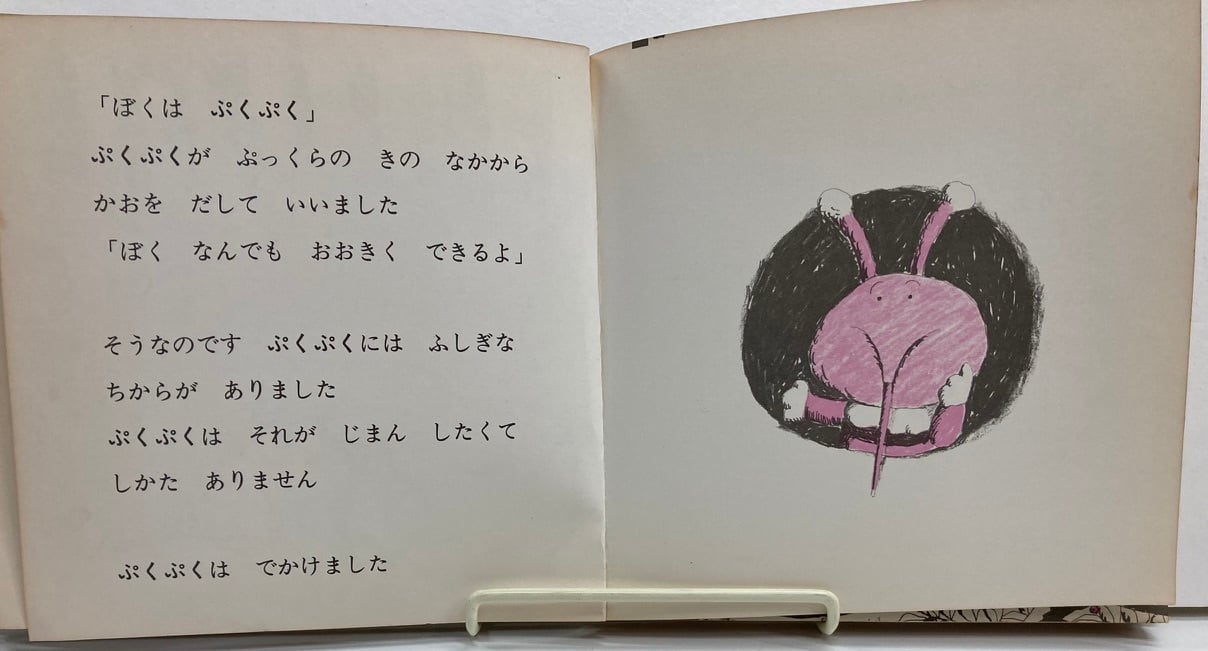 「ぼくは　ぷくぷく」
ぷくぷくが　ぷっくらの　きの　なかから
かおを　だして　いいました
「ぼく　なんでも　おおきく　できるよ」
そうなのです　ぷくぷくには　ふしぎな
ちからが　ありました
ぷくぷくは　それが　じまん　したくて
しかた　ありません
ぷくぷくは　でかけました